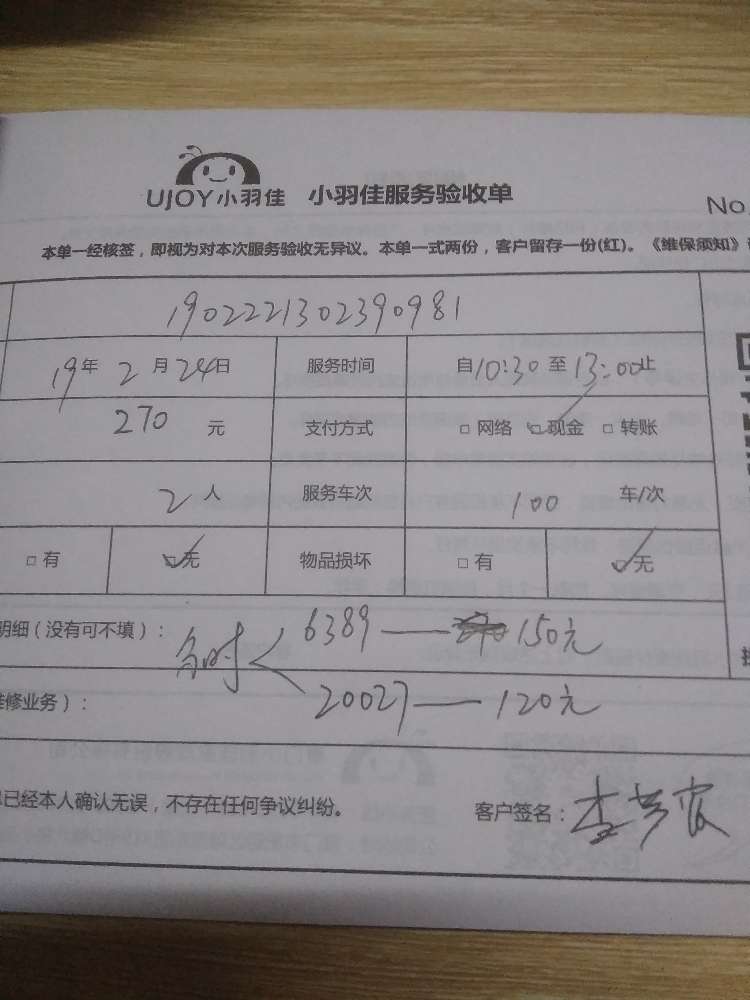 UJOY小羽佳 小羽佳服务验收单
No
本单一经核签，即视为对本次服务验收无异议。本单一式两份，客户留存一份(红)。《维保须知》
1902221302390981
19年 2月 24日 服务时间 自10:30至13:00止
270 元 支付方式 □网络 ☑现金 □转账
2人 服务车次 100 车/次
□有 ☑无 物品损坏 □有 ☑无
明细（没有可不填）： 6389 — 150元
20027 — 120元
修业务）：
已经本人确认无误，不存在任何争议纠纷。 客户签名：